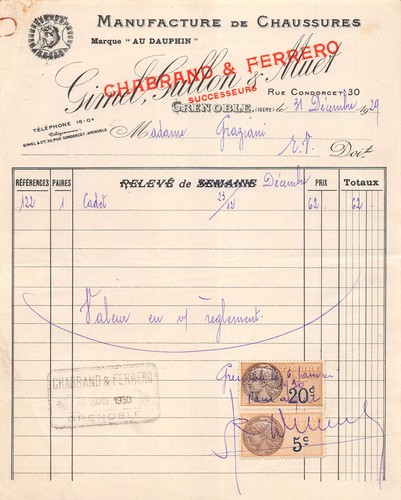 MANUFACTURE DE CHAUSSURES
Marque "AU DAUPHIN"
Gimel, Guillon & Muet
CHABRAND & FERRERO
SUCCESSEURS
RUE CONDORCET, 30
GRENOBLE, (ISÈRE) le 31 Décembre 1929
TÉLÉPHONE 16-04
GIMEL & Cie, 30, RUE CONDORCET, GRENOBLE
Madame Graziani
Doit
RÉFÉRENCES PAIRES RELEVÉ de SEMAINE Décembre PRIX Totaux
122 1 Cadet 23/12 62 62
Valeur en v/ règlement.
CHABRAND & FERRERO
JANV 1930
GRENOBLE
Grenoble le 6 Janvier
1930
Pour acquit
20c
5c